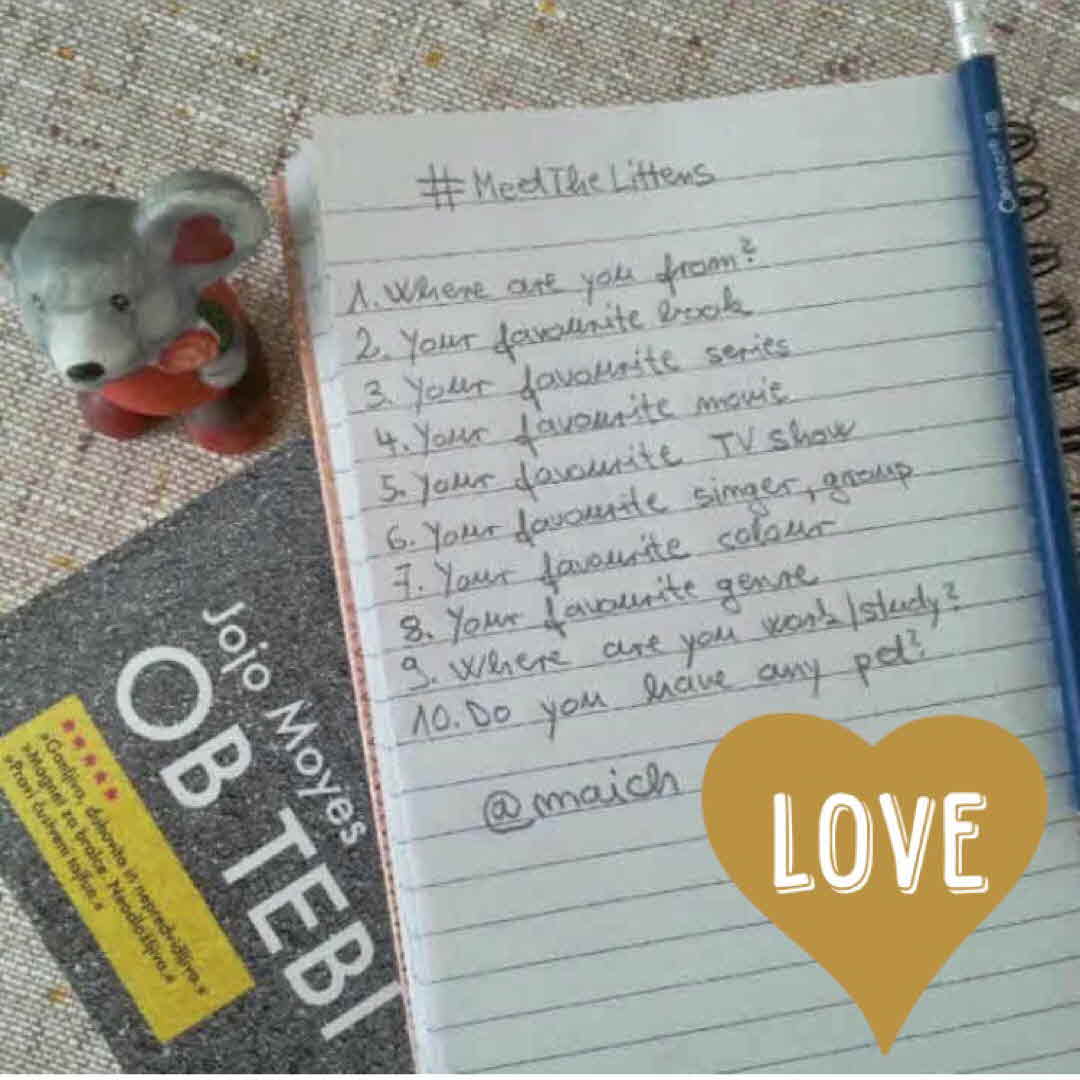 #MeetTheLittens
1. Where are you from?
2. Your favourite book
3. Your favourite series
4. Your favourite movie
5. Your favourite TV show
6. Your favourite singer, group
7. Your favourite colour
8. Your favourite genre
9. Where are you work/study?
10. Do you have any pet?
@maich
LOVE
Jojo Moyes
OB TEBI
»Ganljivo, duhovito in nepredvidljivo.«
»Magnet za bralce. Neodložljivo.«
»Pravi čustveni tajfun.«